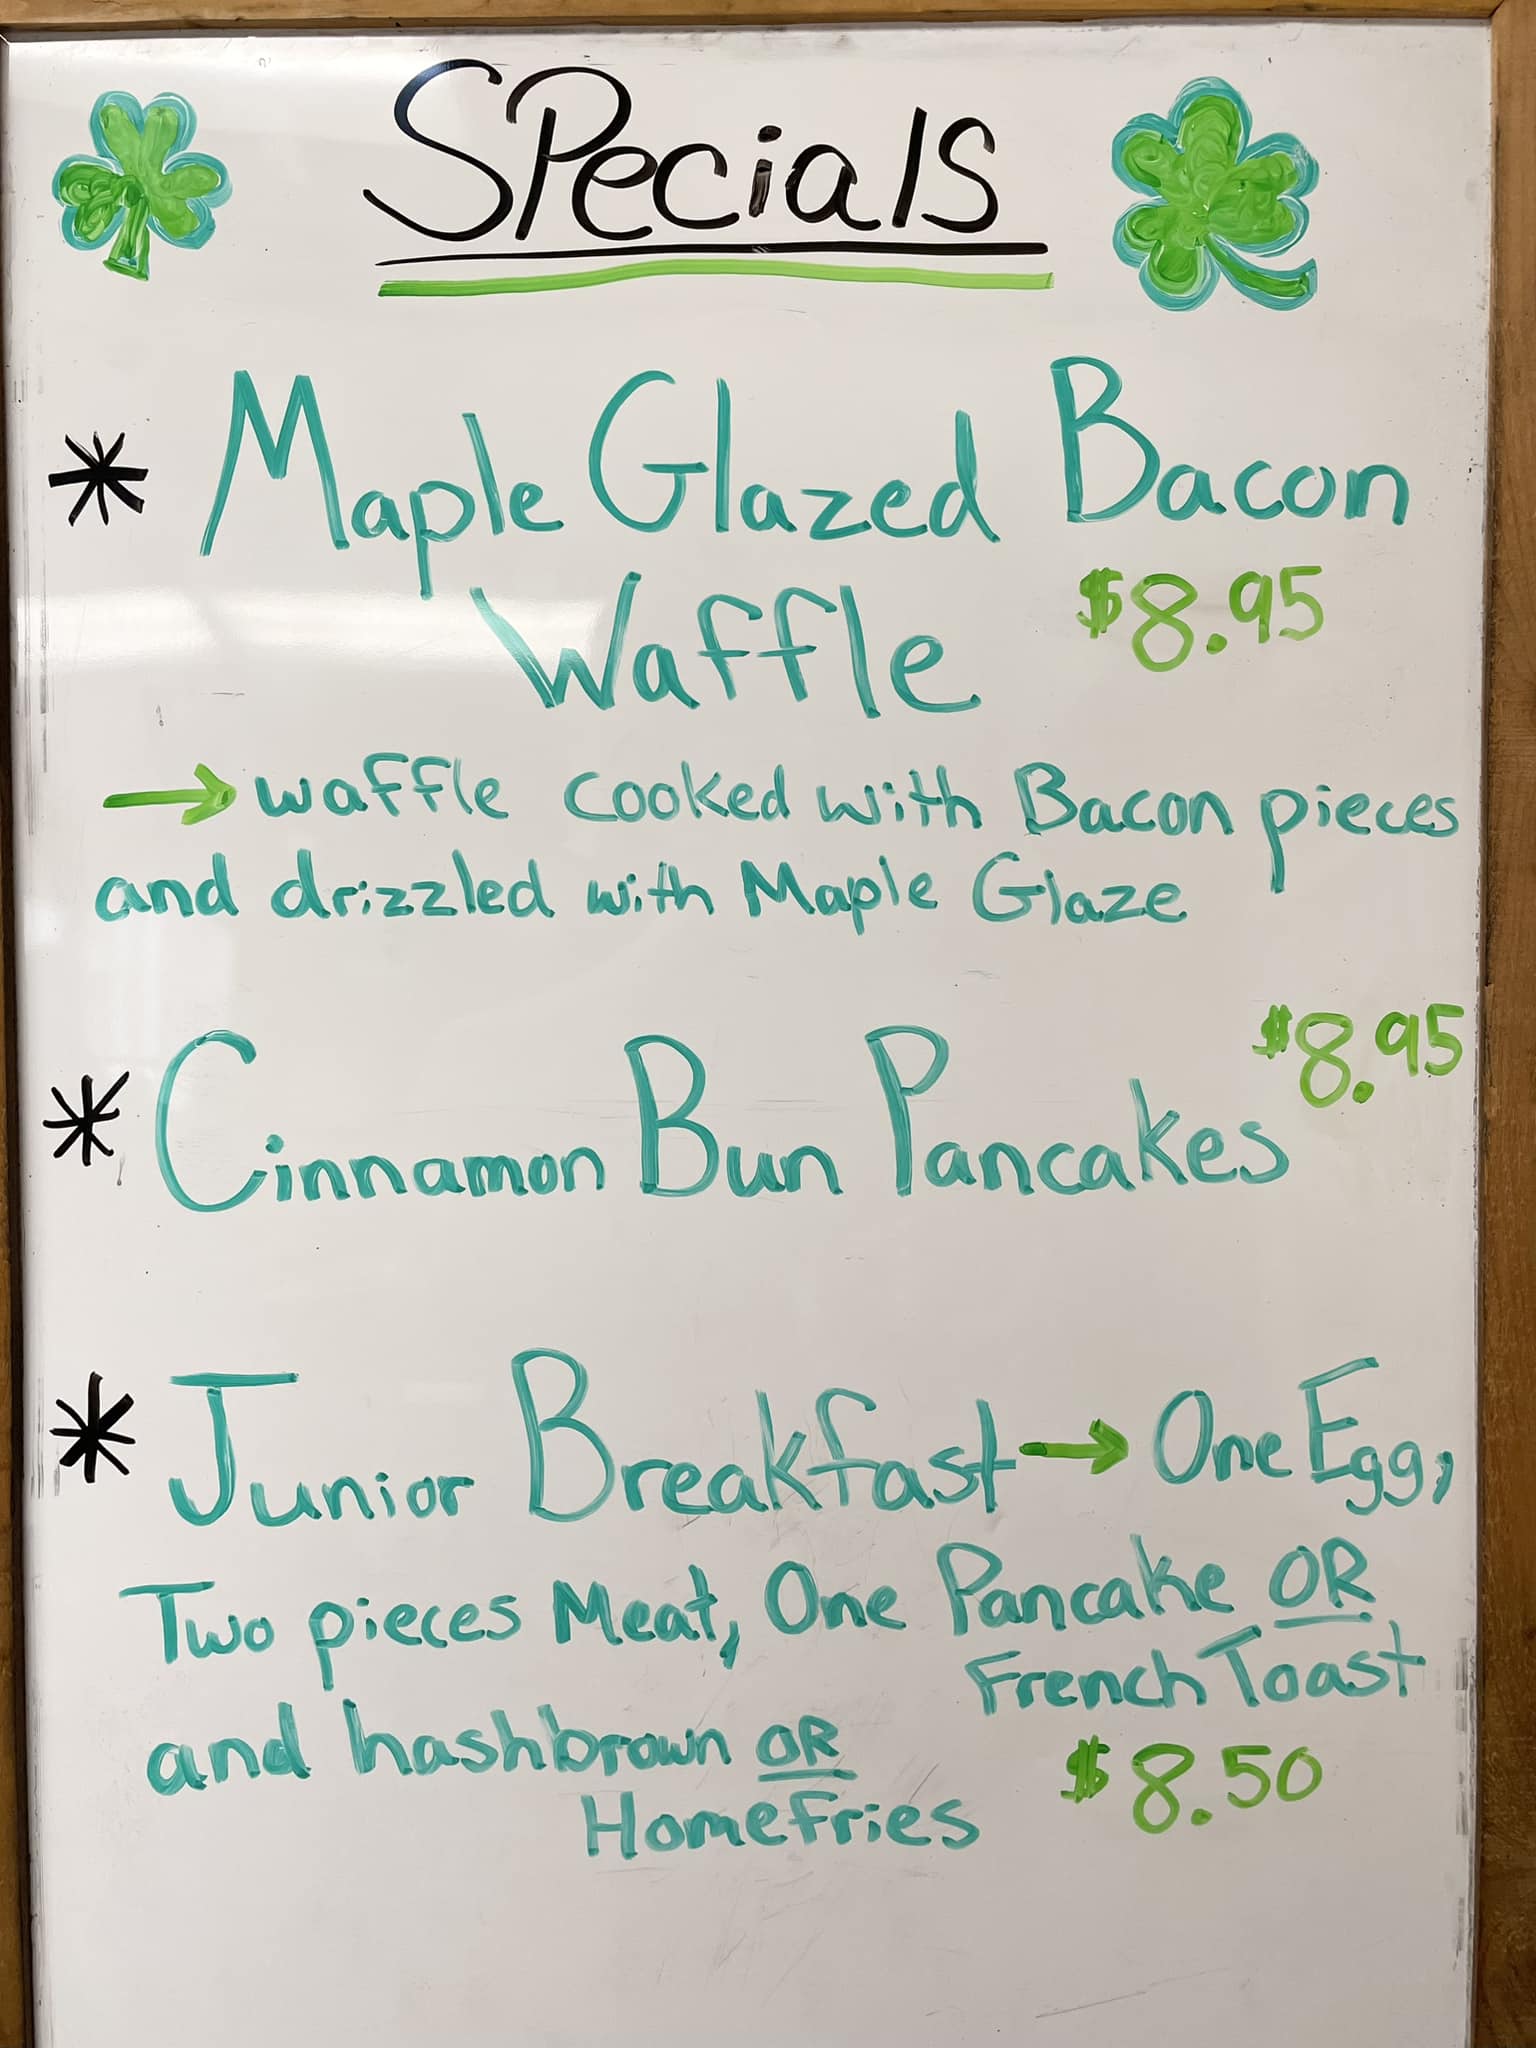 SPecials
* Maple Glazed Bacon
Waffle $8.95
→ waffle cooked with Bacon pieces
and drizzled with Maple Glaze
$8.95
* Cinnamon Bun Pancakes
* Junior Breakfast → One Egg,
Two pieces Meat, One Pancake OR
French Toast
and hashbrown OR
Homefries
$8.50